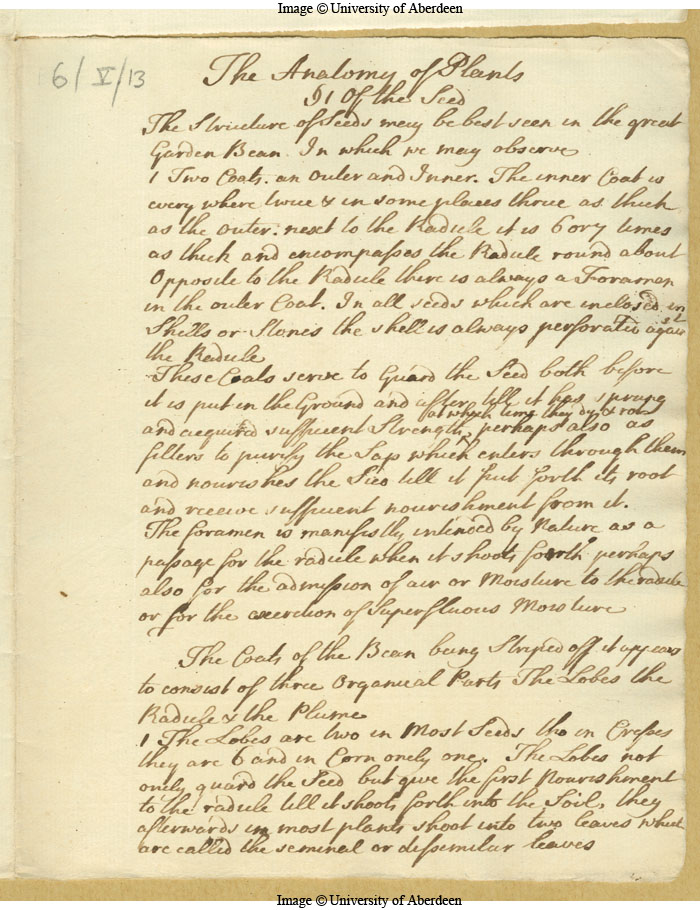 Image © University of Aberdeen
6/V/13
The Anatomy of Plants
§1 Of the Seed
The Structure of Seeds may be best seen in the great
Garden Bean. In which we may observe
1 Two Coats. an outer and Inner. The inner Coat is
every where twice & in some places thrice as thick
as the outer. next to the Radicle it is 6 or 7 times
as thick and encompasses the Radicle round about
Opposite to the Radicle there is always a Foramen
in the outer Coat. In all seeds which are inclosed in
Shells or Stones the shell is always perforated against
the Radicle
These Coats serve to Guard the Seed both before
it is put in the Ground and after till it has sprung
at which time they dy & rot
and acquired sufficient Strength, perhaps also as
filters to purify the Sap which enters through them
and nourishes the Seed till it put forth its root
and receive sufficient nourishment from it.
The foramen is manifestly intended by Nature as a
passage for the radicle when it shoots forth perhaps
also for the admission of air or Moisture to the radicle
or for the excretion of Superfluous Moisture
The Coats of the Bean being Striped off it appears
to consist of three Organical Parts The Lobes the
Radicle & the Plume
1 The Lobes are two in Most Seeds tho in Cresses
they are 6 and in Corn onely one. The Lobes not
onely guard the Seed but give the first Nourishment
to the radicle till it shoots forth into the Soil, they
afterwards in most plants shoot into two leaves which
are called the seminal or dissimilar leaves
Image © University of Aberdeen